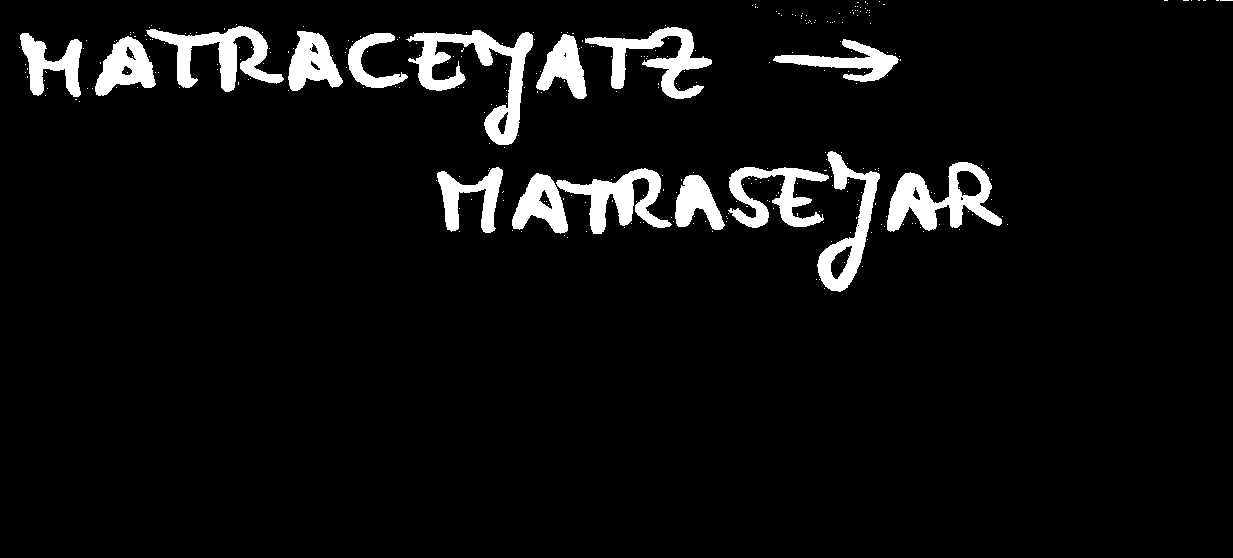 MATRACEJATZ →
MATRASEJAR